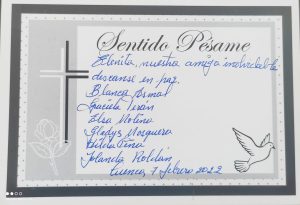 Sentido Pésame
Elenita, nuestra amiga inolvidable
descanse en paz.
Blanca Bernal
Graciela Terán
Elsa Molina
Gladys Mosquera
Peña
Yolanda Roldán
Cuenca, 7 febrero 2022